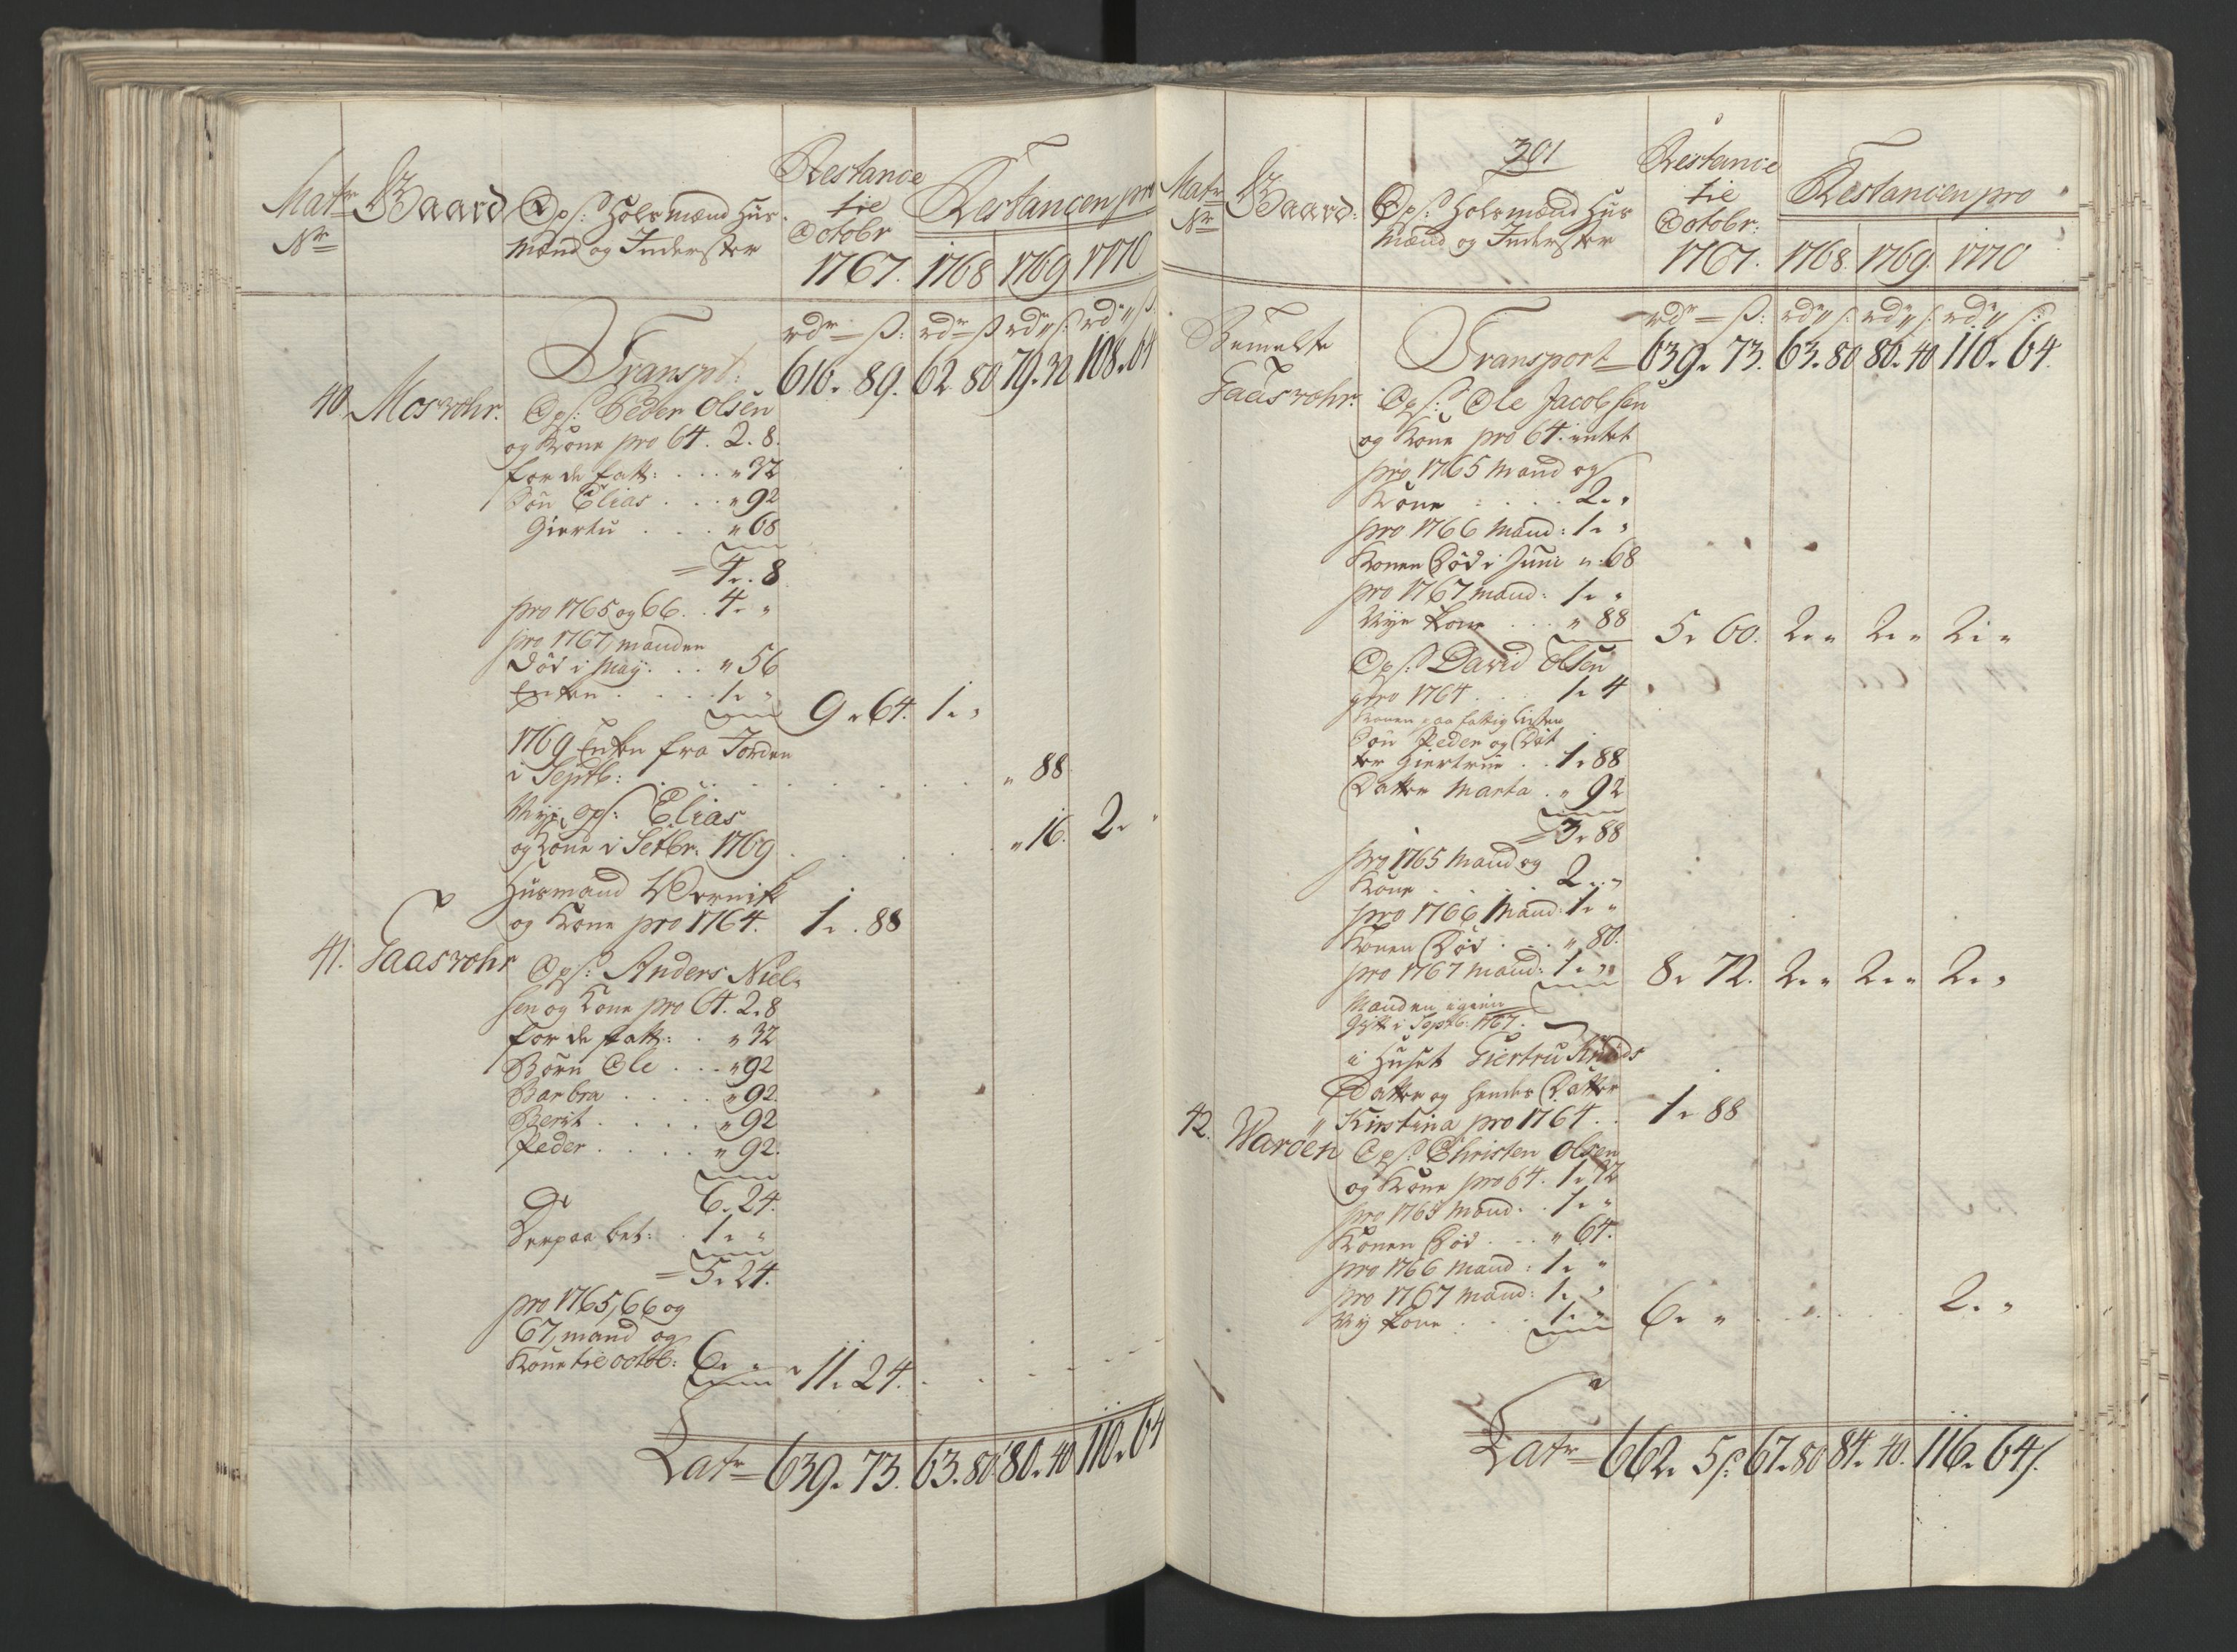 Matr Nr
Gaard
Ops: Holsmænd Hus-
mænd og Inderster
Restance
til
Octobr
1767.
Restancen pro
1768 1769 1770
rdr ß: rdr ß rdr ß: rdr ß:
Transpt: 616. 89. 62. 80 79. 32 108. 64
40. Mosrøhr. Ops: Peder Olsen
og Kone pro 64. 2. 8.
for de fatt: . . . " 32
Søn Elias . . . " 92
Giertru . . . " 68
= 4. 8.
pro 1765 og 66. . 4. "
pro 1767, manden
død i May. . . " 56
Enken . . . . 1. " 9. 64. 1. "
1769 Enken fra Jorden
i Septb: . . . . . . " 88
Nye ops: Elias
og Kone i Setbr. 1769 . . . . " 16. 2. "
Husmand Wernik
og Kone pro 1764. 1. 88
41. Taasrøhr Ops: Anders Niel-
sen og Kone pro 64. 2. 8
for de fatt: . " 32
Børn Ole . . . " 92
Barbra . . . . " 92.
Berit . . . . " 92
Peder . . . . " 92.
6. 24.
Derpaa bet: . 1. "
= 5. 24.
pro 1765, 66 og
67, mand og
Kone til octob: 6. " 11. 24.
Latr 639. 73. 63. 80 80. 40 110. 64
301
Matr Nr
Gaard:
Ops: Holsmænd Hus
mænd og Inderster
Restance
til
Octobr:
1767.
Restancen pro
1768. 1769. 1770
rdr ß: rdr ß: rdr ß: rdr ß:
Bemelte Transport 639. 73. 63. 80 80. 40 110. 64.
Taasrøhr. Ops: Ole Jacobsen
og Kone pro 64. intet
pro 1765 Mand og
Kone . . . . 2. "
pro 1766 Mand: 1. "
Konen død i Juni " 68
pro 1767 Mand: 1. "
Nye Kone . . . " 88 5. 60. 2. " 2. " 2. "
Ops: David Olsen
pro 1764 . . . 1. 4
Konen paa fattig Listen
Søn Peder og Dot
ter Giertrue . . 1. 88
Datter Marta . " 92
= 3. 88
pro 1765 Mand og
Kone . . . . 2. "
pro 1766 Mand: 1. "
Konen Død . . . " 80.
pro 1767 Mand: 1. " 8. 72. 2. " 2. " 2. "
Manden igien
Gift i Septb: 1767.
i Huset Giertru Knuds
Datter og hendes Datter
Kirstina pro 1764 . . 1. 88
42. Warøen Ops: Christen Olsen
og Kone pro 64. 1. 32
pro 1765 Mand. . 1. "
Konen Død . . . " 64.
pro 1766 Mand: 1. "
pro 1767 Mand: 1. "
Ny Kone . . . 1. " 6. " . . . . 2. "
Latr 662. 5 ß: 67. 80 84. 40. 116. 64 ß.